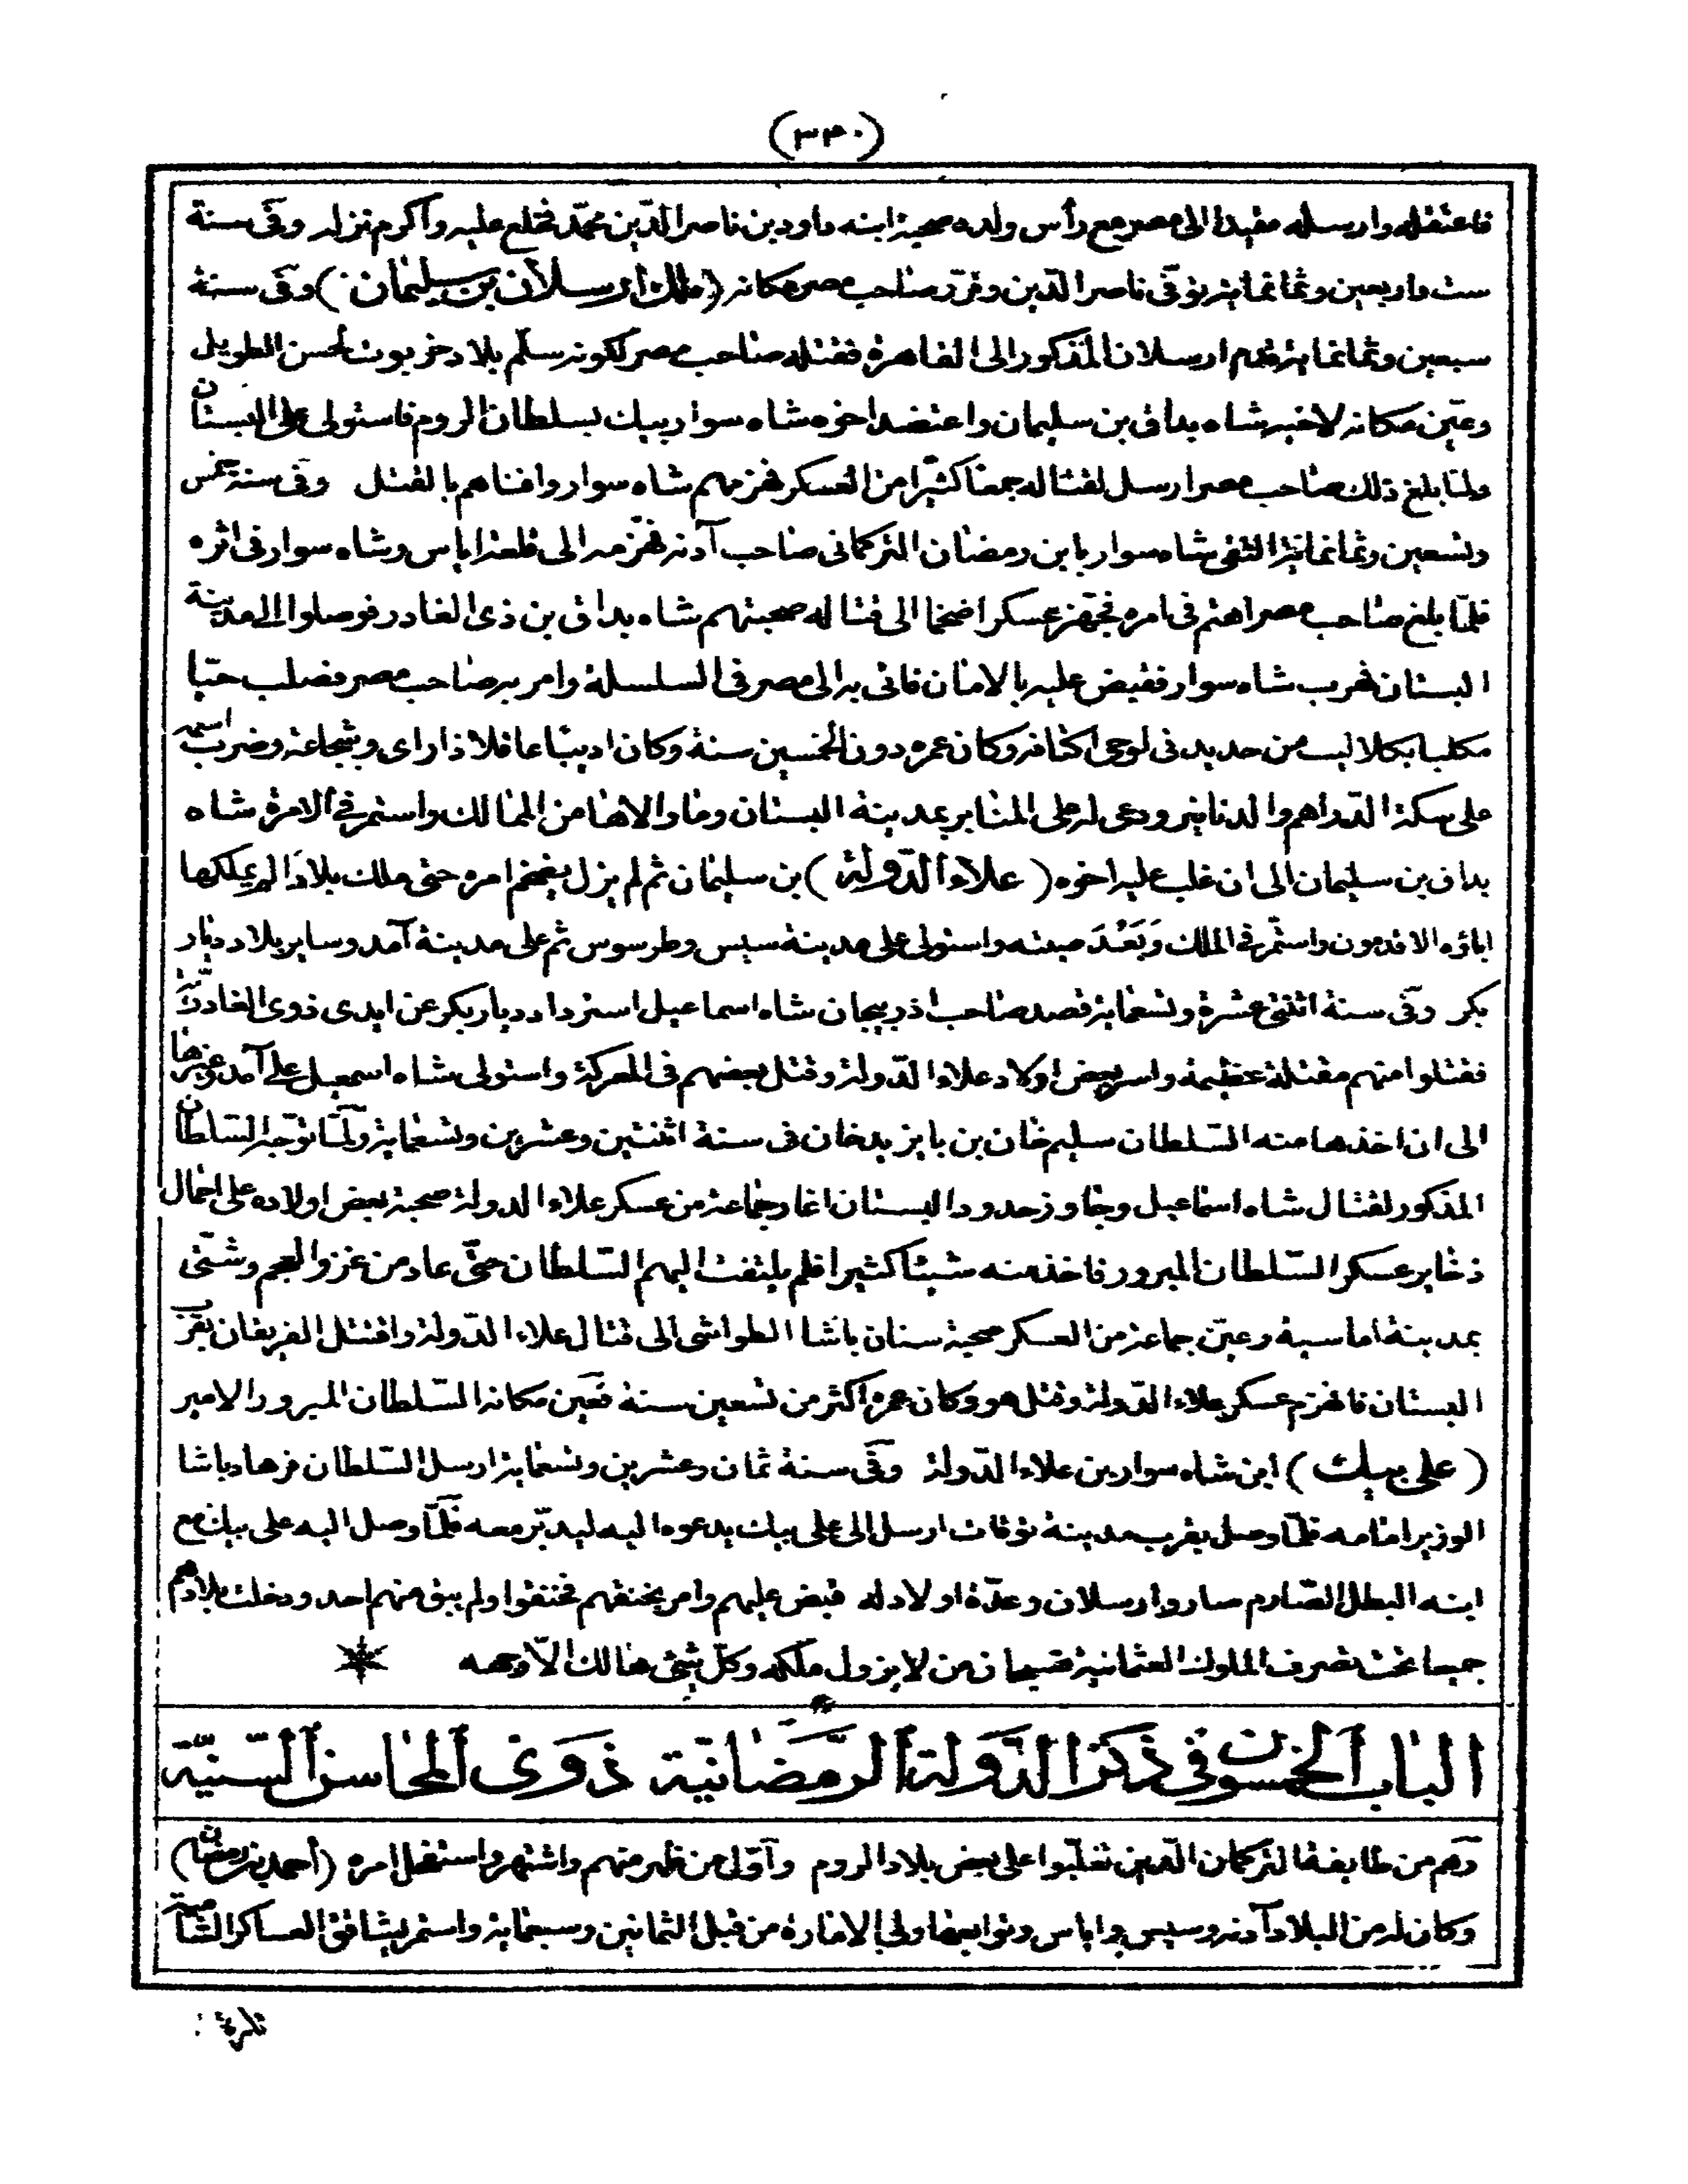 (٣٣٠)
فاعتقله وارسله مقيدا الى مصر مع رأس ولده صحبة ابنه داود بن ناصر الدّين محمّد فخلع عليه وأكرم نزله وفى سنة
ست واربعين وثمانمائة توفّى ناصر الدّين وقرّر صاحب مصر مكانه (ملك ارسلان بن سليمان) وفى سنة
سبعين وثمانمائة قدم ارسلان المذكور الى القاهرة فقتله صاحب مصر لكونه سلّم بلاد خربوت لحسن الطويل
وعيّن مكانه لاخيه شاه بداق بن سليمان واعتضد اخوه شاه سوار بيك بسلطان الروم فاستولى على البستان
ولمّا بلغ ذلك صاحب مصر ارسل لقتاله جمعا كثيرا من العسكر فهزمهم شاه سوار وافناهم بالقتل وفى سنة خمس
وتسعين وثمانمائة التقى شاه سوار بابن رمضان التركمانى صاحب آدنه فهزمه الى قلعة اياس وشاه سوار فى اثره
فلمّا بلغ صاحب مصر اهتم فى امره فجهّز عسكرا ضخما الى قتاله صحبتهم شاه بداق بن ذى الغادر فوصلوا الى مدينة
البستان فهرب شاه سوار فقبض عليه بالامان فاتى به الى مصر فى السلسلة وامر به صاحب مصر فصلب حيّا
مكلبا بكلاليب من حديد فى لوحى اكتافه وكان عمره دون الخمسين سنة وكان اديبا عاقلا ذا راى وشجاعة وضرب اسمه
على سكة الدّراهم والدنانير ودعى له على المنابر بمدينة البستان وما والاها من الممالك واستمر فى الامرة شاه
بداق بن سليمان الى ان غلب عليه اخوه (علاء الدّولة) بن سليمان ثم لم يزل يفخم امره حتى ملك بلادا لم يملكها
اباؤه الاقدمون واستمّر فى الملك وَبَعُدَ صيته واستولى على مدينة سيس وطرسوس ثم على مدينة آمد وساير بلاد ديار
بكر وفى سنة اثنتى عشرة وتسعمائة قصد صاحب اذربيجان شاه اسماعيل استرداد ديار بكر عن ايدى ذوى الغادريّة
فقتلوا منهم مقتلة عظيمة واسر بعض اولاد علاء الدّولة وقتل بعضهم فى المعركة واستولى شاه اسمعيل على آمد وغيرها
الى ان اخذها منه السّلطان سليم خان بن بايزيد خان فى سنة اثنتين وعشرين وتسعمائة ولمّا توجّه السّلطان
المذكور لقتال شاه اسماعيل وجاوز حدود البستان اغار جماعة من عسكر علاء الدولة صحبة بعض اولاده على احمال
ذخاير عسكر السّلطان المبرور فاخذ منه شيئا كثيرا فلم يلتفت اليهم السّلطان حتّى عاد من غزو العجم وشتّى
بمدينة اماسية وعيّن جماعة من العسكر صحبة سنان باشا الطواشى الى قتال علاء الدّولة واقتتل الفريقان بقرب
البستان فانهزم عسكر علاء الدّولة وقتل هو وكان عمره اكثر من تسعين سنة فعيّن مكانه السّلطان المبرور الامير
(على بيك) ابن شاه سوار بن علاء الدّولة وفى سنة ثمان وعشرين وتسعمائة ارسل السّلطان فرهاد باشا
الوزير امامه فلمّا وصل بقرب مدينة توقات ارسل الى على بيك يدعوه اليه ليدبّر معه فلمّا وصل اليه على بيك مع
ابنه البطل الصّارم صارو ارسلان وعدّة اولاد له قبض عليهم وامر بخنقهم فخنقوا ولم يبق منهم احد ودخلت بلادهم
جميعا تحت تصرف الملوك العثمانية فسبحان من لا يزول ملكه وكلّ شئ هالك الّا وجهه
الباب الخمسون فى ذكر الدّولة الرّمضانيّة ذوى المحاسن السّنيّة
وهم من طايفة التركمان الّذين تغلّبوا على بعض بلاد الروم وأوّل من ظهر منهم واشتهر واستفحل امره (أحمد بن رمضان)
وكان له من البلاد آدنه وسيس واياس وتوابعها ولى الامارة من قبل الثمانين وسبعمائة واستمر يشاقق العساكر الشّامية
تارة